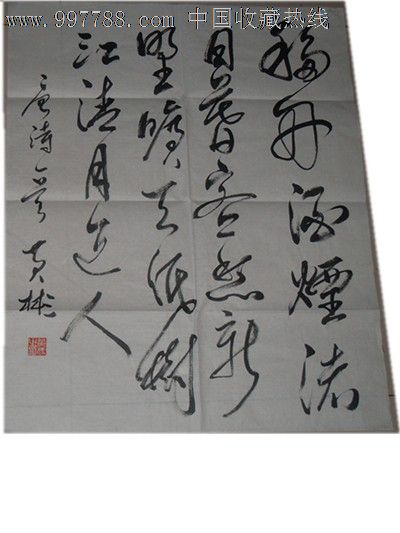 www.997788.com 中国收藏热线
移舟泊煙渚
日暮客愁新
野曠天低樹
江清月近人
唐诗一首